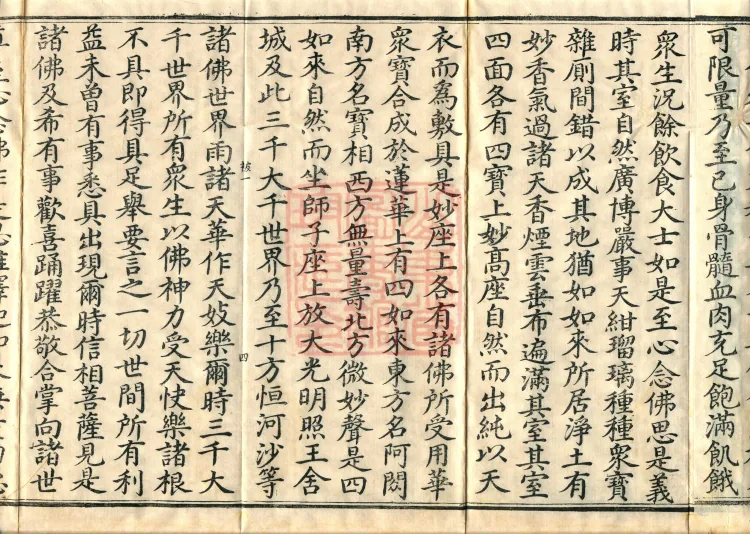 可限量乃至已身骨髓血肉充足飽滿飢餓
衆生況餘飲食大士如是至心念佛思是義
時其室自然廣博嚴事天紺瑠璃種種衆寶
雜廁間錯以成其地猶如如來所居淨土有
妙香氣過諸天香煙雲垂布遍滿其室其室
四面各有四寶上妙高座自然而出純以天
衣而爲敷具是妙座上各有諸佛所受用華
衆寶合成於蓮華上有四如來東方名阿閦
南方名寶相西方無量壽北方微妙聲是四
如來自然而坐師子座上放大光明照王舍
城及此三千大千世界乃至十方恒河沙等
被一 四
諸佛世界雨諸天華作天妓樂爾時三千大
千世界所有衆生以佛神力受天快樂諸根
不具即得具足舉要言之一切世間所有利
益未曾有事悉具出現爾時信相菩薩見是
諸佛及希有事歡喜踊躍恭敬合掌向諸世